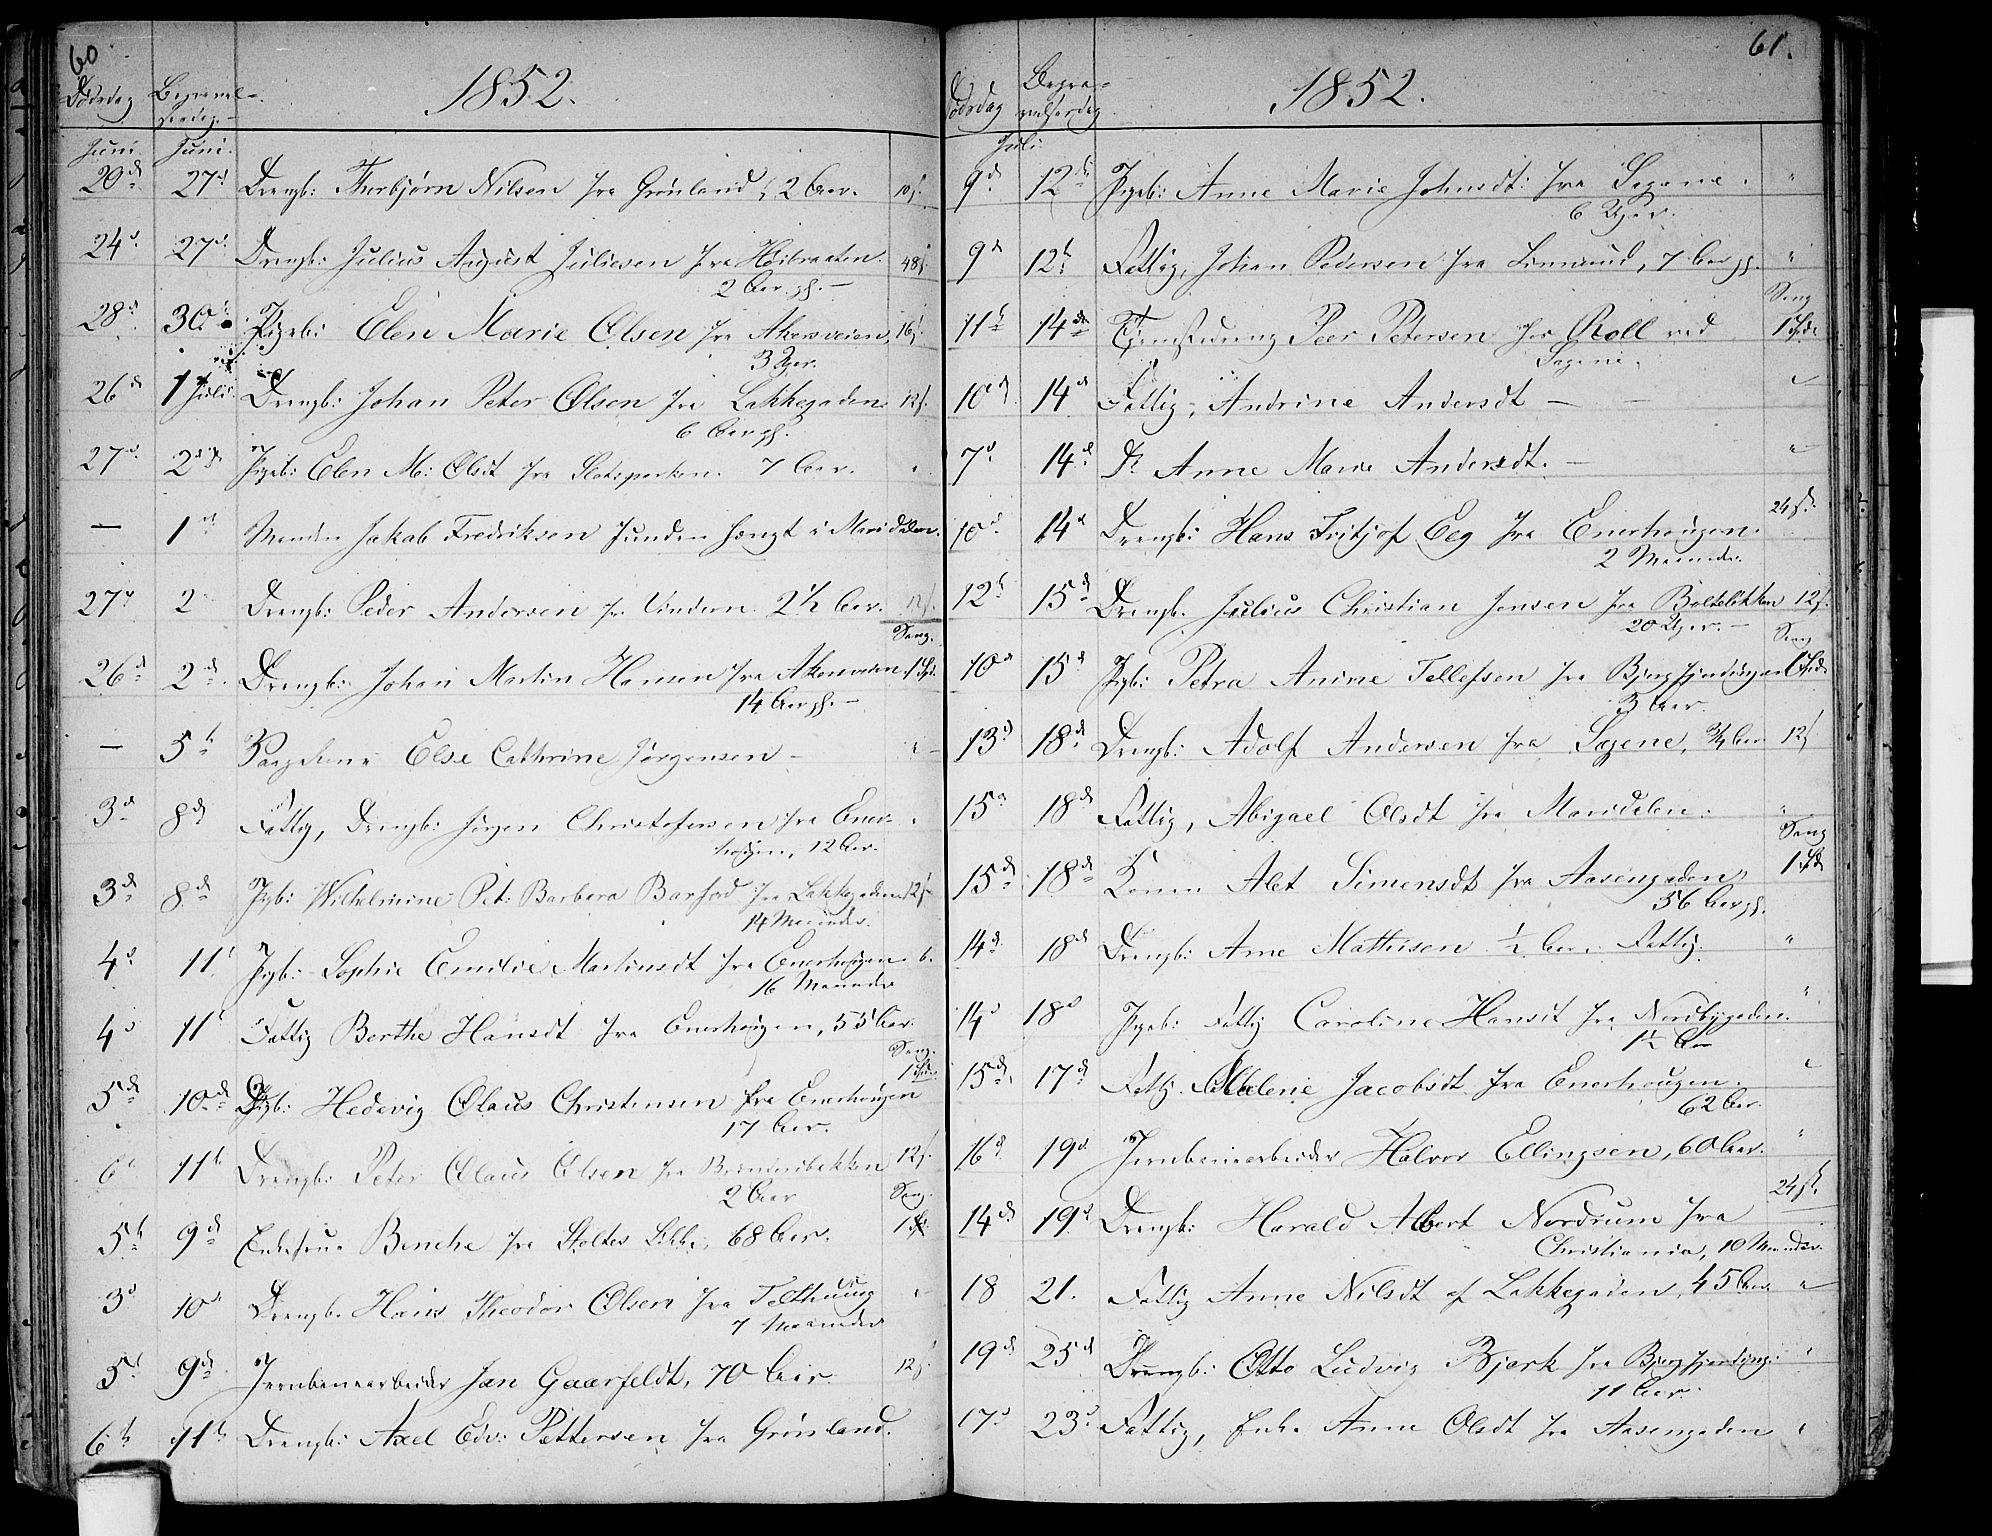 60
1852.
Dødsdag Begravel-
sesdag.
Juni. Juni.
20de 27de Drengb: Thorbjørn Nilsen fra Grønland, 2 Aar. 10s.
24d. 27d. Drengb: Julius August Juliesen fra Høibraaten. 48s.
2 Aar gl.
28d 30. Pigeb: Elen Marie Olsen fra Akersveien, 16s
3 Uger.
26de 1 Juli. Drengb: Johan Peter Olsen fra Lakkegaden. 12s.
6 Aar gl.
27d. 2den Pigeb: Elen M: Olsdt fra Slotsparken. 7 Aar. "
— 1st Manden Jakob Fredriksen funden hængt i Maridalen.
27d 2 Drengb: Peder Andersen fr Vindern 2½ Aar. 12s.
Seng.
26de 2de Drengb: Johan Martin Hansen fra Akersveien, 1 Spd.
14 Aar gl. —
— 5t Else Cathrine Jørgensen —
3d 8de Fattig, Drengb: Jørgen Christofersen fra Ener-
hougen, 12 Aar.
3de 8de Pigb: Wilhelmine Pet: Barbara Barfod fra Lakkegaden 12s
14 Maaneder.
4d 11t Pigb: Sophie Emilie Martinsdt fra Enerhougen 6.
16 Maaneder
4d 11t Fattig Berthe Hansdt fra Enerhougen, 55 Aar.
Seng.
1 Spd.
5de 10de Pigb: Hedevig Olaus Christensen fra Enerhougen
17 Aar.
6t 11t Drengb: Peter Olaus Olsen fra 12s.
2 Aar
Seng.
5t 9de Enkefrue Benche fra Stoltes Løkke, 68 Aar. 1 Spd.
3d 10d Drengb. Hans Theodor Olsen fra Telthuug "
7 Maaneder
5t 9de Jernbanearbeider Jan Gaarfeldt, 70 Aar. 12s.
6te 11te Drengb: Axel Edv: Pettersen fra Grønland.
61.
1852.
Dødsdag Begra-
velsesdag
Juli
9d. 12te Pigeb: Anne Marie Johnsdt: fra Sagene. "
6 Uger.
9d 12t. Fattig, Johan Pedersen fra Linnerud, 7 Aar gl. "
Seng
11t 14de Tjenestedreng Peer Petersen hos Roll ved 1 Spd.
Sagene.
10d 14d Fattig, Andrine Andersdt — — "
7d. 14d. Do Anne Marie Andersdt. — "
10d. 14d Drengb: Hans Fritjof Eeg fra Enerhougen. 24 s.
2 Maaneder.
12t 15de Drengb. Julius Christian Jensen fra Bolteløkken 12s.
20 Uger. —
Seng
10d 15d Pigb: Petra Anine Tellefsen fra Bjergfjerdingen 1 Spd.
3 Aar.
13d 18de Drengb: Adolf Andersen fra Sagene, ¾ Aar 12s
15d 18de Fattig, Abigael Olsdt fra Maridalen. "
Seng
15de 18de Konen Alet Simensdt fra Aasengaden, 1 Spd
56 Aar gl.
14d. 18de Drengb: Arne Mathisen ½ Aar. Fattig. "
14d 18d Pigeb: Fattig Caroline Hansdt fra Nordbygaden. "
1½ Aar
15de. 17de Fattig. Malene Jacobsdt fra Enerhougen. "
62 Aar.
16d. 19d. Jernbanearbeider Halvor Ellingsen, 60 Aar. "
14de 19d Drengb: Harald Albert Nordrum fra 24 s.
Christiania, 10 Maaneder.
18 21. Fattig Anne Nilsdt af Lakkegaden, 45 Aar. "
19de 25d Drengb: Otto Ludvig Bjerk fra Bjergfjerding: "
11 Aar.
17d 23d Fattig, Enke Anne Olsdt fra Aasengaden "